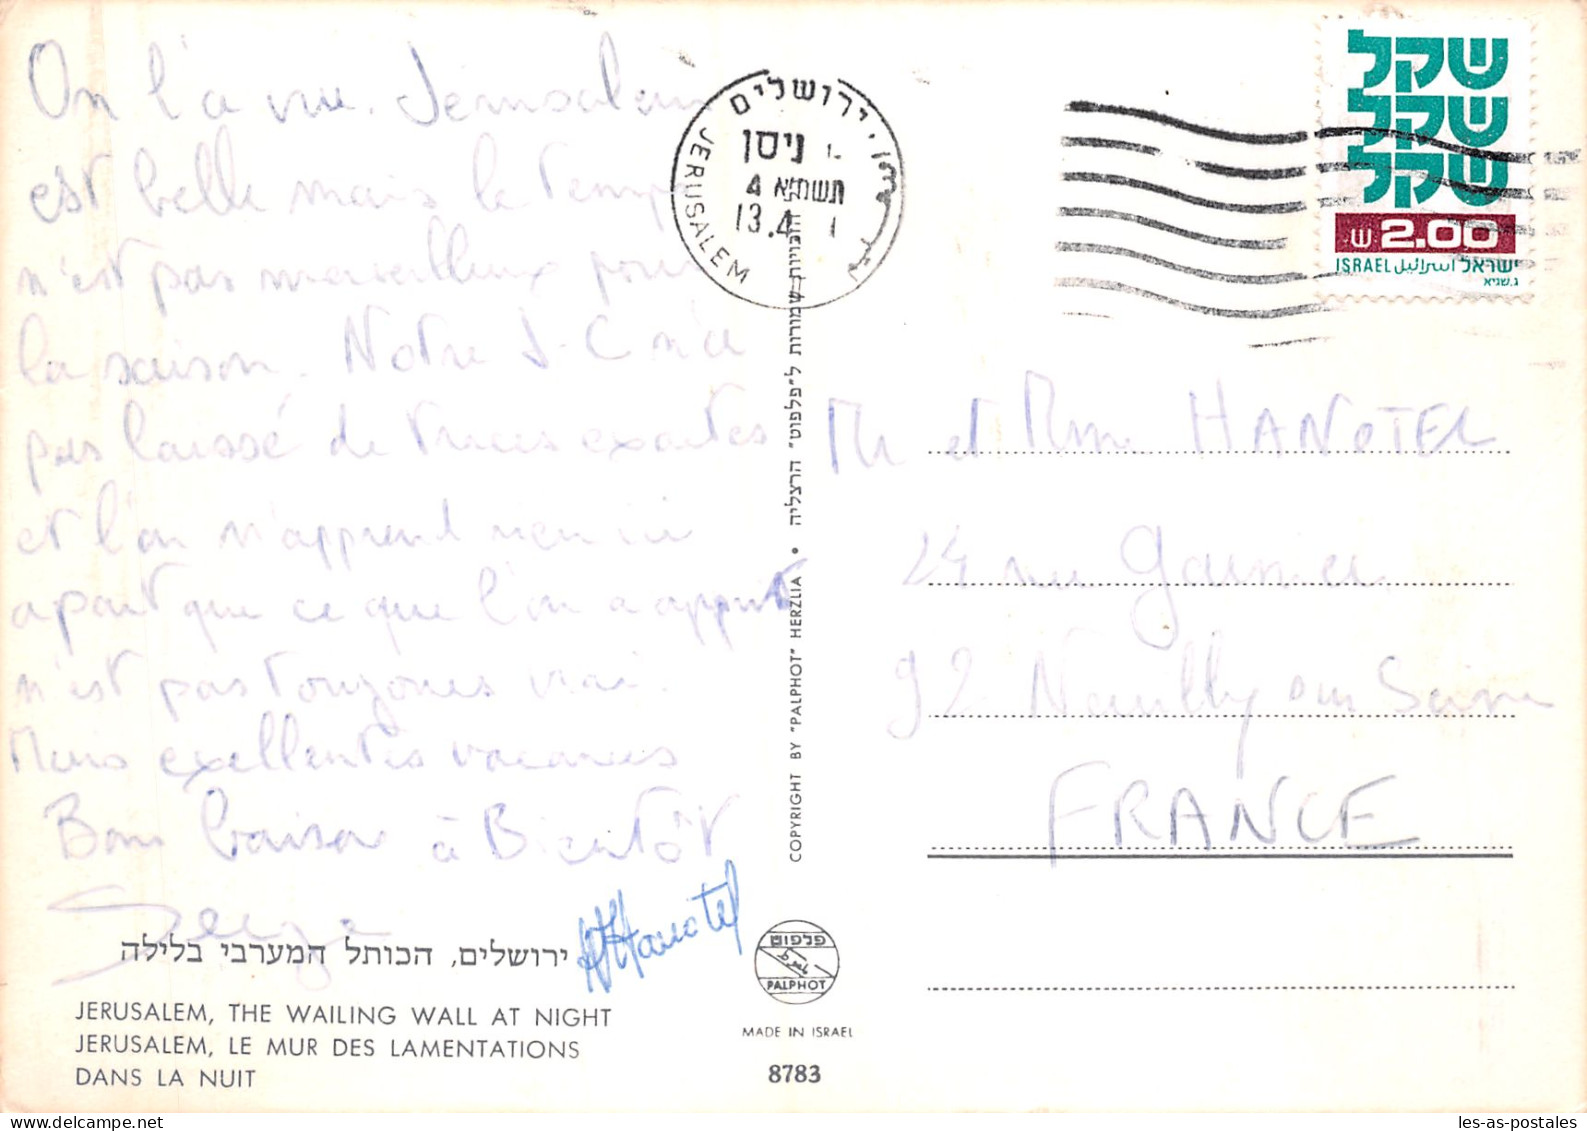 On l'a vue. Jerusalem
est belle mais le temps
n'est pas merveilleux pour
la saison. Notre J-C n'a
pas laissé de traces exactes
et l'on n'apprend rien ici
apart que ce que l'on a appris
n'est pas toujours vrai.
Mais excellentes vacances
Bons baisers à Bientôt
Serge
Hanotel
ירושלים, הכותל המערבי בלילה
JERUSALEM, THE WAILING WALL AT NIGHT
JERUSALEM, LE MUR DES LAMENTATIONS
DANS LA NUIT
ירושלים
ניסן
תשמ"א
13.4
JERUSALEM
כל הזכויות שמורות ל"פלפוט" הרצליה •
COPYRIGHT BY "PALPHOT" HERZLIA
פלפוט
PALPHOT
MADE IN ISRAEL
8783
שקל
שקל
שקל
ש 2.00
ISRAEL اسرائيل ישראל
ג.שגיא
Mr et Mme HANOTEL
24 rue Garnier
92 Neuilly sur Seine
FRANCE
les-as-postales